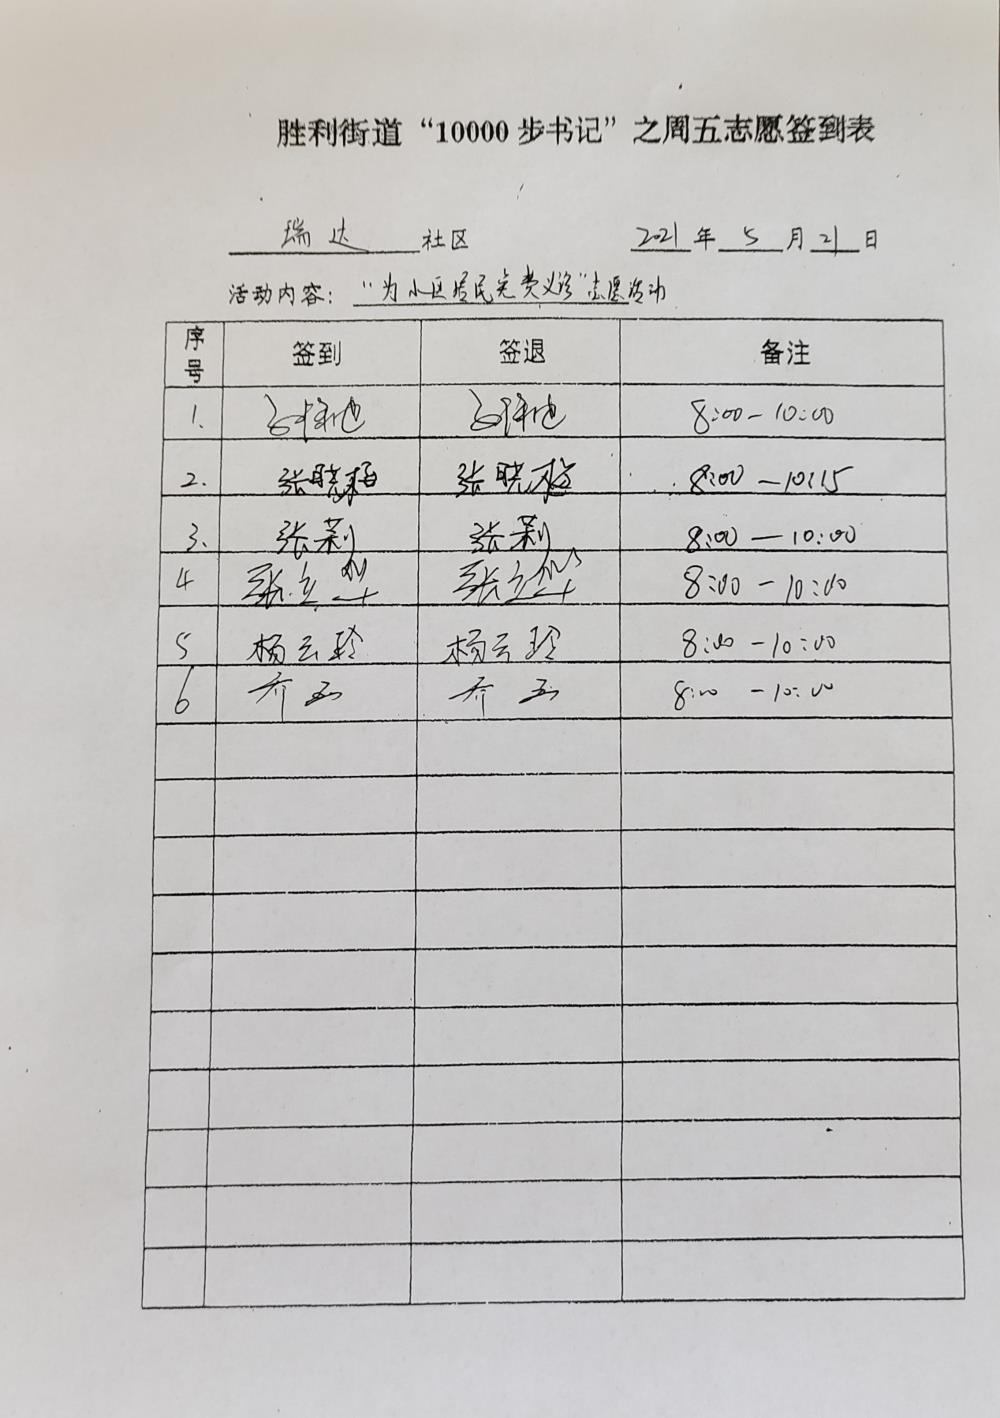 胜利街道“10000步书记”之周五志愿签到表
瑞达 社区 2021年 5 月 21 日
活动内容：“为小区居民免费义诊”志愿活动
序号 签到 签退 备注
1. 8:00-10:00
2. 张晓梅 张晓梅 8:00-10:15
3. 张莉 张莉 8:00-10:00
4 张立华 张立华 8:00-10:00
5 杨云玲 杨云玲 8:00-10:00
6 乔玉 乔玉 8:00-10:00